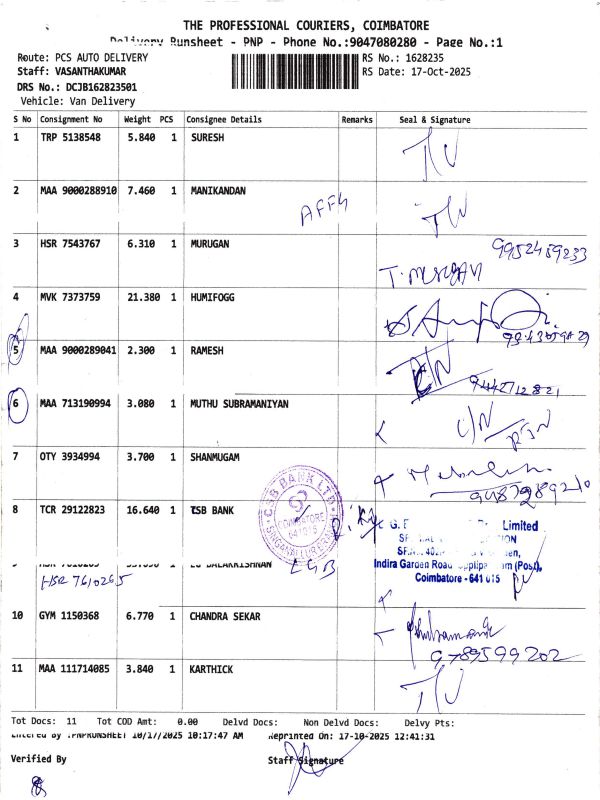 THE PROFESSIONAL COURIERS, COIMBATORE
Delivery Runsheet - PNP - Phone No.:9047080280 - Page No.:1
Route: PCS AUTO DELIVERY RS No.: 1628235
Staff: VASANTHAKUMAR RS Date: 17-Oct-2025
DRS No.: DCJB162823501
Vehicle: Van Delivery
S No Consignment No Weight PCS Consignee Details Remarks Seal & Signature
1 TRP 5138548 5.840 1 SURESH
2 MAA 9000288910 7.460 1 MANIKANDAN
3 HSR 7543767 6.310 1 MURUGAN 9952459233
T. MURUGAN
4 MVK 7373759 21.380 1 HUMIFOGG
5 MAA 9000289041 2.300 1 RAMESH
9442712821
6 MAA 713190994 3.080 1 MUTHU SUBRAMANIYAN
7 OTY 3934994 3.700 1 SHANMUGAM
8 TCR 29122823 16.640 1 CSB BANK
CSB BANK LTD
COIMBATORE
Limited
Indira Garden Road
(Post),
Coimbatore - 641 015
9 1 BALAKRISHNAN
HSR 7610265
10 GYM 1150368 6.770 1 CHANDRA SEKAR
9789599202
11 MAA 111714085 3.840 1 KARTHICK
Tot Docs: 11 Tot COD Amt: 0.00 Delvd Docs: Non Delvd Docs: Delvy Pts:
Entered By :PNPRUNSHEET 10/17/2025 10:17:47 AM Reprinted On: 17-10-2025 12:41:31
Verified By Staff Signature